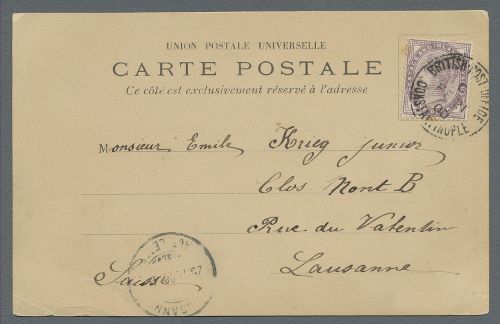 UNION POSTALE UNIVERSELLE
CARTE POSTALE
Ce côté est exclusivement réservé à l'adresse
BRITISH POST OFFICE
CONSTANTINOPLE
Monsieur Emile Krieg junior
Clos Mont B
Rue du Valentin
Lausanne
Suisse